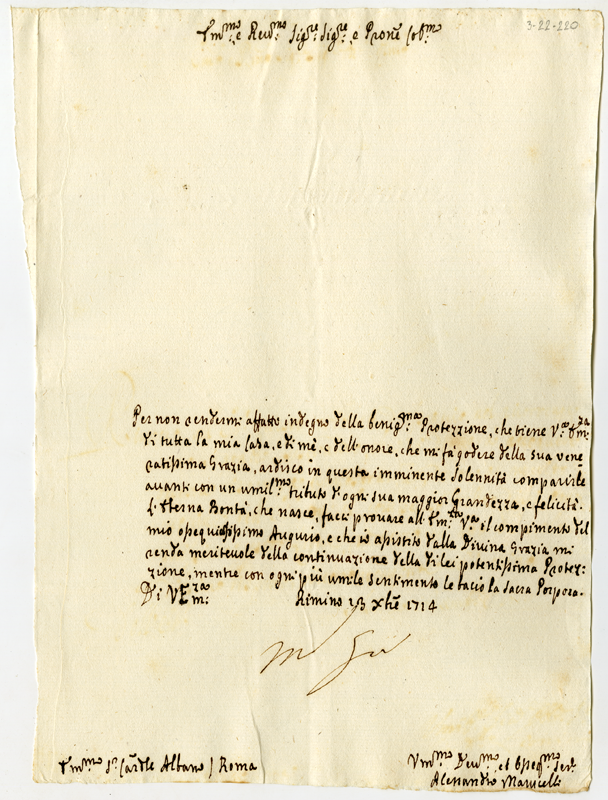 3-22-220
Em.mo e Rev.mo Sig.re Sig.re e Prone Col.mo
Per non rendermi affatto indegno della benig.ma Protezzione, che tiene V.ra Em.za
di tutta la mia Casa, e di mè, e dell'onore, che mi fà godere della sua vene
ratissima Grazia, ardisco in questa imminente solennità comparirle
avanti con un umil.mo tributo d'ogni sua maggior Grandezza, e felicità.
L'Eterna Bontà, che nasce, facci provare all'Em.za V.ra il compimento del
mio ossequiosissimo Augurio, e che io assistito dalla Divina Grazia mi
renda meriteuole della continuazione della di lei potentissima Protez:
zione, mentre con ogni più umile sentimento le bacio la Sacra Porpora.
Di VEm.za Rimino 13 Xbre 1714
Em.mo Sr Cardle Albano / Roma
Um.mo Dev.mo et Osseq.mo Ser.
Alessandro